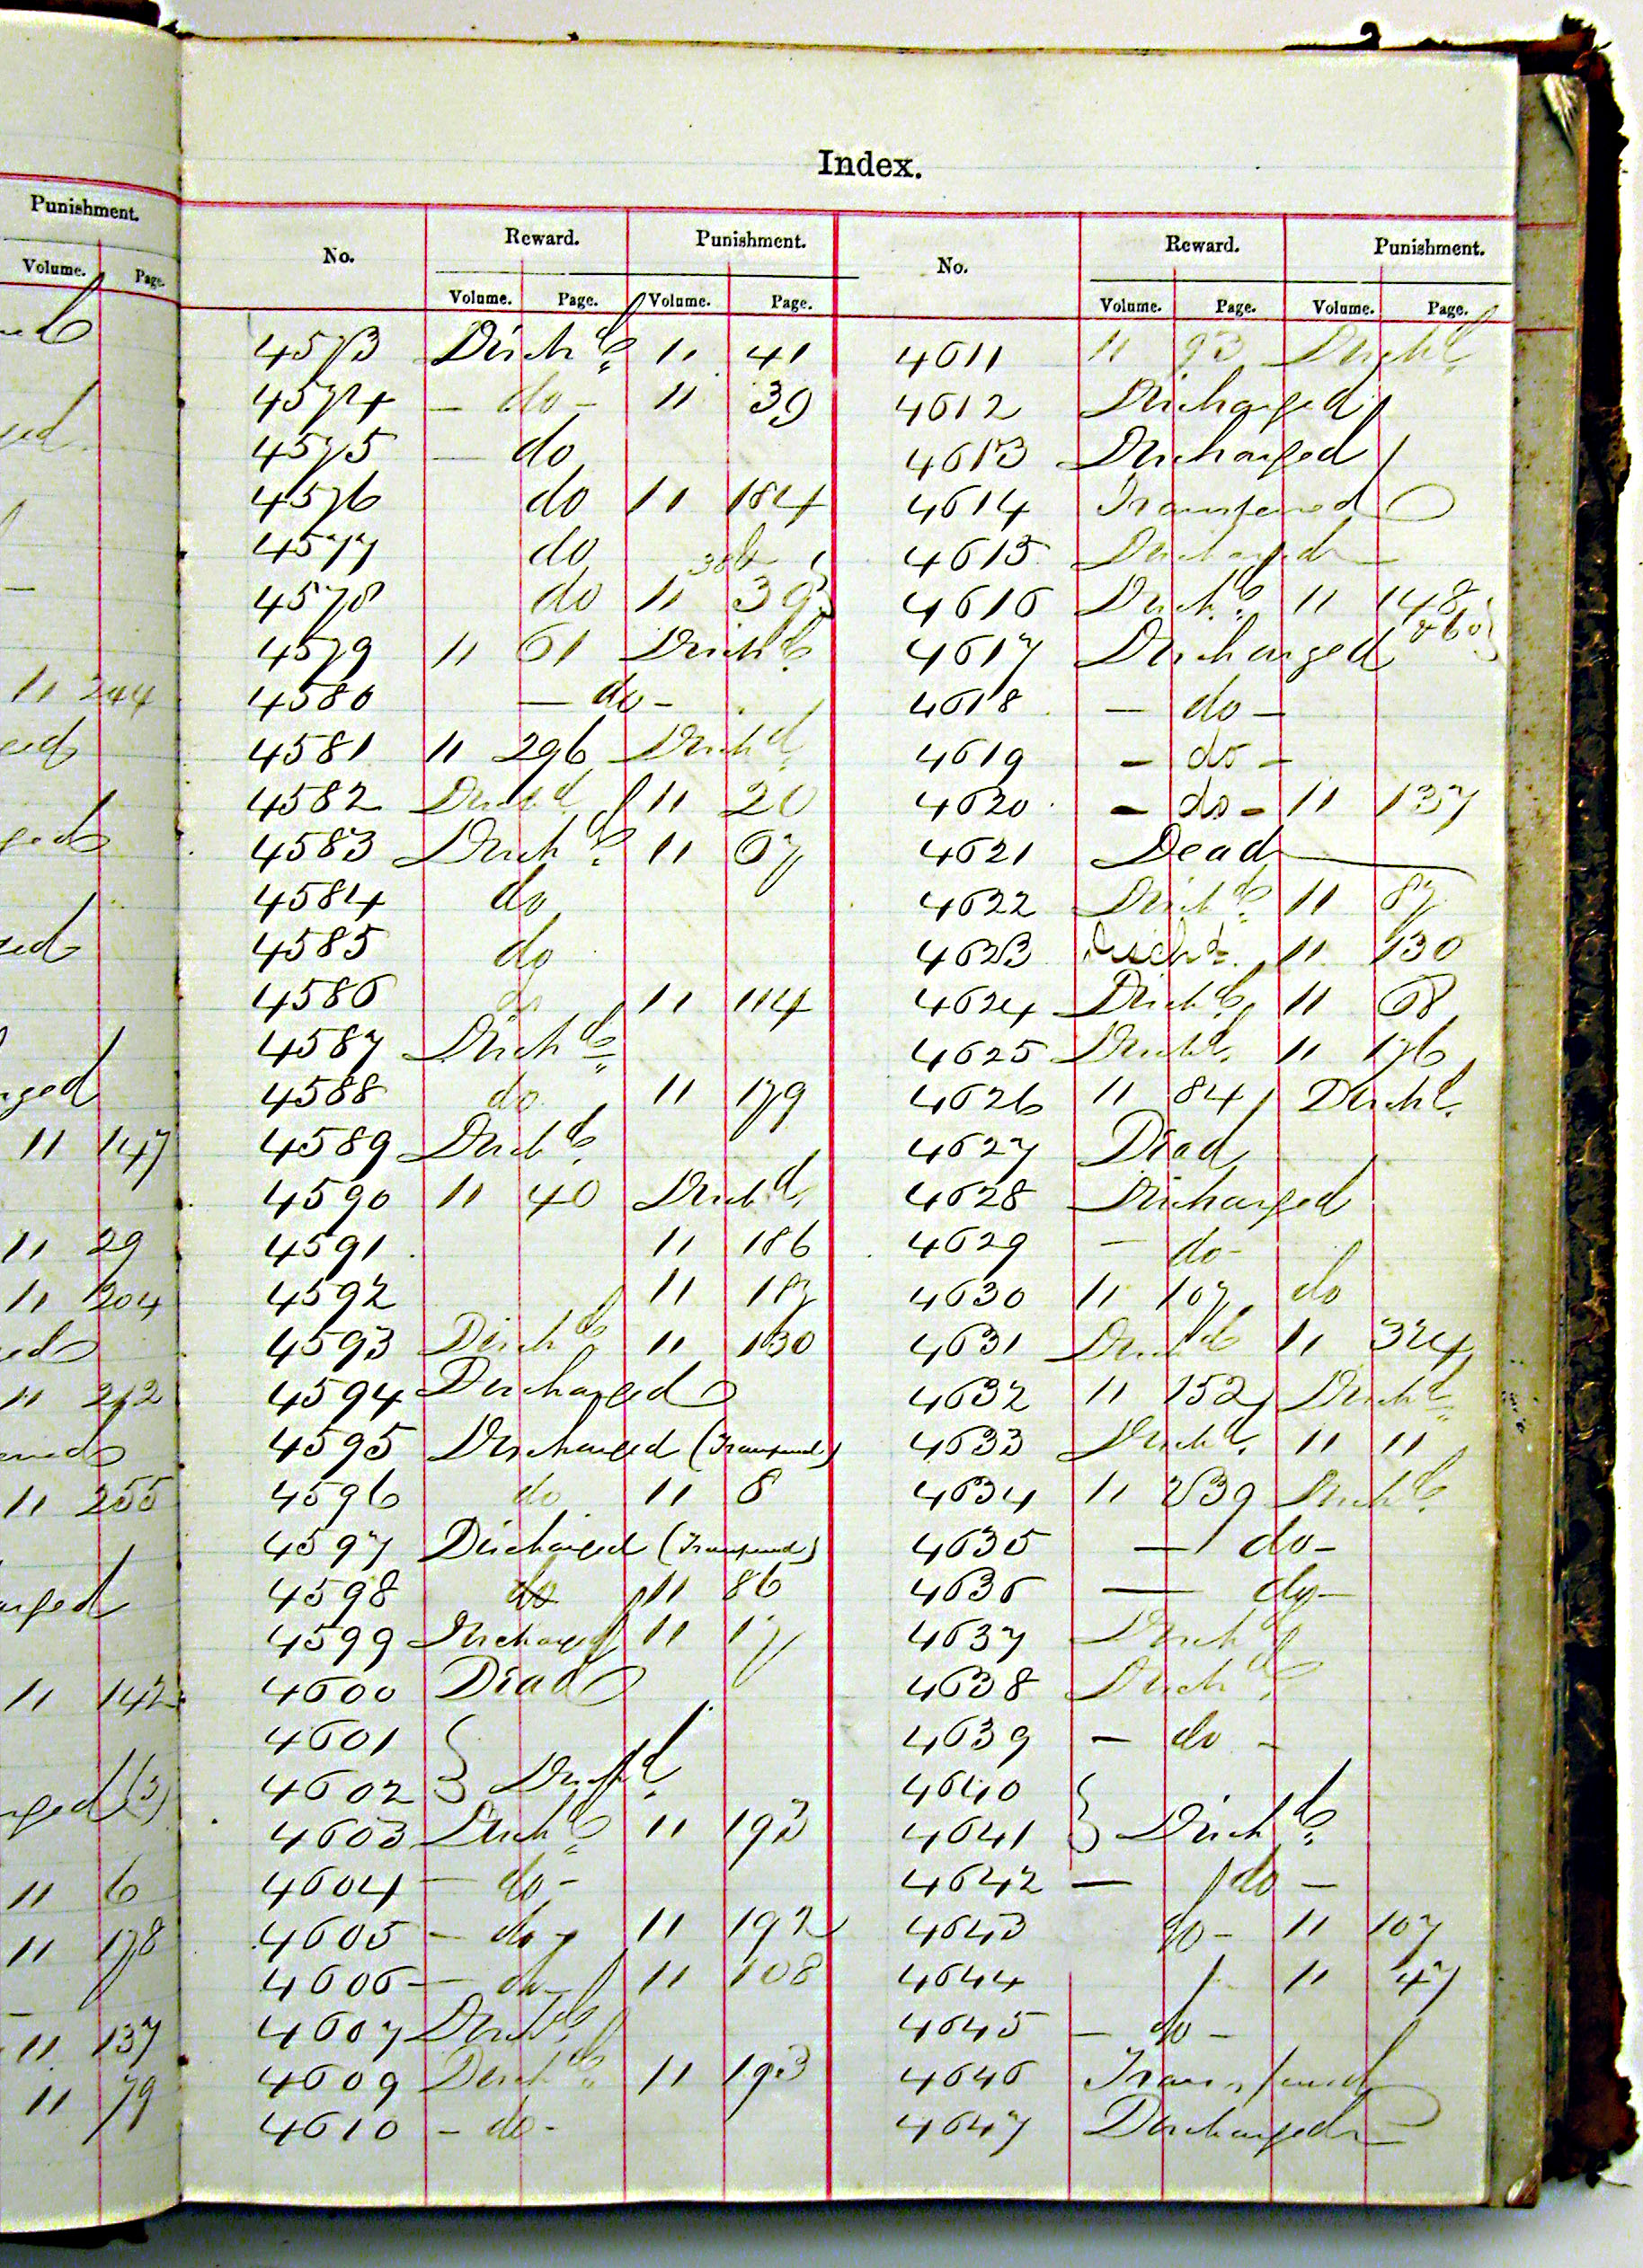 Punishment.
Volume. Page.
11 244
11 147
11 29
11 204
11 212
11 255
11 142
11 6
11 178
11 137
11 79
Index.
No. Reward. Punishment. No. Reward. Punishment.
Volume. Page. Volume. Page. Volume. Page. Volume. Page.
4573 Disch'd 11 41
4574 - do - 11 39
4575 - do
4576 do 11 184
4577 do
4578 do 11 39
4579 11 61 Disch'd
4580 - do -
4581 11 296 Disch'd
4582 Disch'd 11 20
4583 Disch'd 11 67
4584 do
4585 do
4586 do 11 114
4587 Disch'd
4588 do 11 179
4589 Disch'd
4590 11 40 Disch'd
4591 11 186
4592 11
4593 Disch'd 11 130
4594 Discharged
4595 Discharged (Transferred)
4596 do 11 8
4597 Discharged (Transferred)
4598 do 11 86
4599 Discharged 11 17
4600 Dead
4601
4602 } Disch'd
4603 Disch'd 11 193
4604 - do -
4605 - do - 11 192
4606 - do - 11 108
4607 Disch'd
4609 Disch'd 11 193
4610 - do -
4611 11 93 Disch'd
4612 Discharged
4613 Discharged
4614 Transferred
4615 Discharged
4616 Disch'd 11 148
4617 Discharged
4618 - do -
4619 - do -
4620 - do - 11 137
4621 Dead
4622 Disch'd 11 87
4623 Disch'd 11 130
4624 Disch'd 11 68
4625 Disch'd 11 176
4626 11 84 Disch'd
4627 Dead
4628 Discharged
4629 - do -
4630 11 107 do
4631 Disch'd 11 324
4632 11 152 Disch'd
4633 Disch'd 11 11
4634 11 239 Disch'd
4635 - do -
4636 - do -
4637 Disch'd
4638 Disch'd
4639 - do -
4640
4641 } Disch'd
4642 - do -
4643 do - 11 107
4644 11 47
4645 - do -
4646 Transferred
4647 Discharged